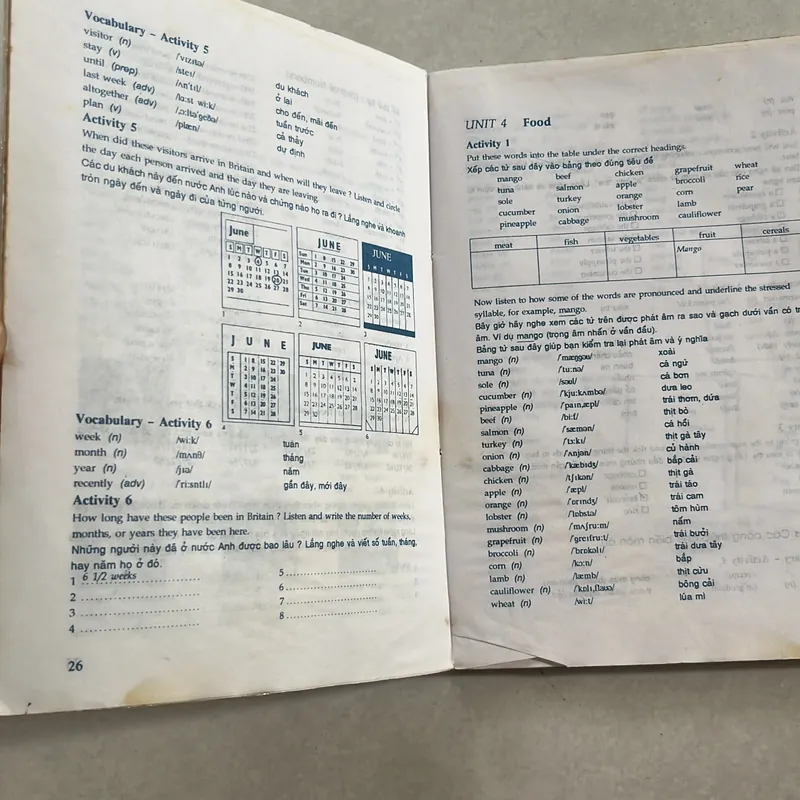 Vocabulary – Activity 5
visitor (n) /'vɪzɪtə/ du khách
stay (v) /steɪ/ ở lại
until (prep) /ʌn'tɪl/ cho đến, mãi đến
last week (adv) /lɑ:st wi:k/ tuần trước
altogether (adv) /ˌɔ:ltə'geðə/ cả thảy
plan (v) /plæn/ dự định
Activity 5
When did these visitors arrive in Britain and when will they leave ? Listen and circle
the day each person arrived and the day they are leaving.
Các du khách này đến nước Anh lúc nào và chừng nào họ ra đi ? Lắng nghe và khoanh
tròn ngày đến và ngày đi của từng người.
June
JUNE
JUNE
1
2
3
JUNE
JUNE
JUNE
4
5
6
Vocabulary – Activity 6
week (n) /wi:k/ tuần
month (n) /mʌnθ/ tháng
year (n) /jɪə/ năm
recently (adv) /'ri:sntlɪ/ gần đây, mới đây
Activity 6
How long have these people been in Britain ? Listen and write the number of weeks,
months, or years they have been here.
Những người này đã ở nước Anh được bao lâu ? Lắng nghe và viết số tuần, tháng,
hay năm họ ở đó.
1 6 1/2 weeks
2
3
4
5
6
7
8
26
UNIT 4 Food
Activity 1
Put these words into the table under the correct headings.
Xếp các từ sau đây vào bảng theo đúng tiêu đề
mango beef chicken grapefruit wheat
tuna salmon apple broccoli rice
sole turkey orange corn pear
cucumber onion lobster lamb
pineapple cabbage mushroom cauliflower
meat fish vegetables fruit cereals
Mango
Now listen to how some of the words are pronounced and underline the stressed
syllable, for example, mango.
Bây giờ hãy nghe xem các từ trên được phát âm ra sao và gạch dưới vần có
âm. Ví dụ mango (trọng âm nhấn ở vần đầu).
Bảng từ sau đây giúp bạn kiểm tra lại phát âm và ý nghĩa
mango (n) /'mæŋgəʊ/ xoài
tuna (n) /'tu:nə/ cá ngừ
sole (n) /səʊl/ cá bơn
cucumber (n) /'kju:kʌmbə/ dưa leo
pineapple (n) /'paɪnˌæpl/ trái thơm, dứa
beef (n) /bi:f/ thịt bò
salmon (n) /'sæmən/ cá hồi
turkey (n) /'tɜ:kɪ/ thịt gà tây
onion (n) /'ʌnjən/ củ hành
cabbage (n) /'kæbɪdʒ/ bắp cải
chicken (n) /'tʃɪkən/ thịt gà
apple (n) /'æpl/ trái táo
orange (n) /'ɒrɪndʒ/ trái cam
lobster (n) /'lɒbstə/ tôm hùm
mushroom (n) /'mʌʃru:m/ nấm
grapefruit (n) /'greɪfru:t/ trái bưởi
broccoli (n) /'brɒkəlɪ/ trái dưa tây
corn (n) /kɔ:n/ bắp
lamb (n) /læmb/ thịt cừu
cauliflower (n) /'kɒlɪˌflaʊə/ bông cải
wheat (n) /wi:t/ lúa mì